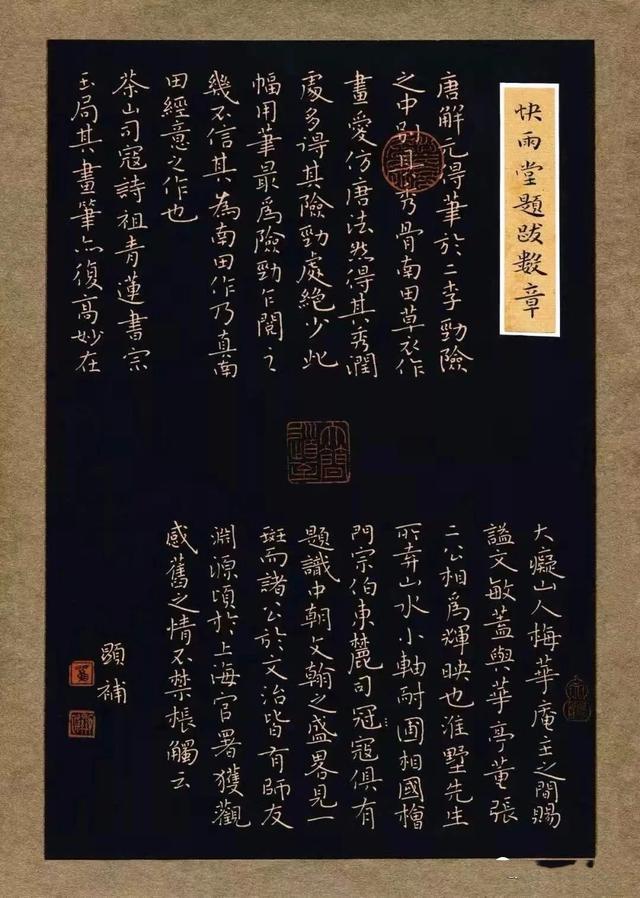 快雨堂題跋數章
唐解元得筆於二李勁險
之中別具秀骨南田草衣作
畫愛仿唐法然得其秀潤
處多得其險勁處絕少此
幅用筆最爲險勁乍閱之
幾不信其為南田作乃真南
田經意之作也
茶山司寇詩祖青蓮書宗
玉局其畫筆亦復高妙在
大癡山人梅華庵主之間賜
謚文敏蓋與華亭董張
二公相爲輝映也淮墅先生
所弆山水小軸耐圃相國檜
門宗伯東麓司冠寇俱有
題識中朝文翰之盛畧見一
斑而諸公於文治皆有師友
淵源頃於上海官署獲觀
感舊之情不禁棖觸云
顯補